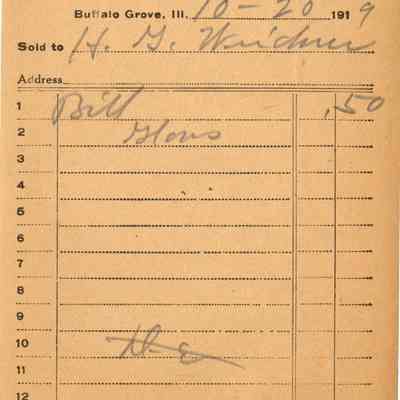 Buffalo Grove, Ill. 10-20 1919
Sold to H. G. Weidner
Address
1 Bill .50
2 Glovs
3
4
5
6
7
8
9
10
11
12